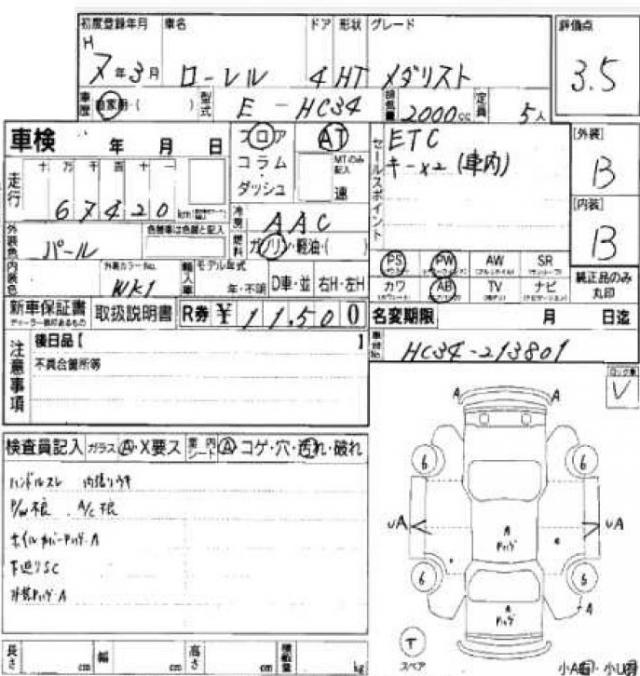 初度登録年月 車名 ドア 形状 グレード 評価点
H
7年3月 ローレル 4 HT メダリスト 3.5
車歴 自家用・( ) 型式 E-HC34 排気量 2000cc 定員 5人
車検 年 月 日
フロア AT
コラム MTのみ記入
ダッシュ 速
セールスポイント ETC
キー×2 (車内)
[外装]
B
[内装]
B
走行 十 万 千 百 十 一
67420 km
冷房 AAC
燃料 ガソリン・軽油・( )
外装色 パール 色替車は色替と記入
内装色 外装カラーNo. WK1
輸入車 モデル年式 年・不明 D車・並 右H・左H
PS PW AW SR
カワ AB TV ナビ
純正品のみ丸印
新車保証書 取扱説明書 R券 ¥ 11,500
名変期限 月 日迄
HC34-213801
注意事項
後日品【 】
不具合箇所等
検査員記入 ガラス A・X要ス 室内シート A コゲ・穴・汚れ・破れ
ハンドルスレ 内張りウキ
P/W不良 A/C不良
ホイルカバーキズ・A
下廻りSC
A
A
6
6
UA
UA
A
6
6
A
T
スペア
小A有・小U有
長さ cm 幅 cm 高さ cm 積載量 kg